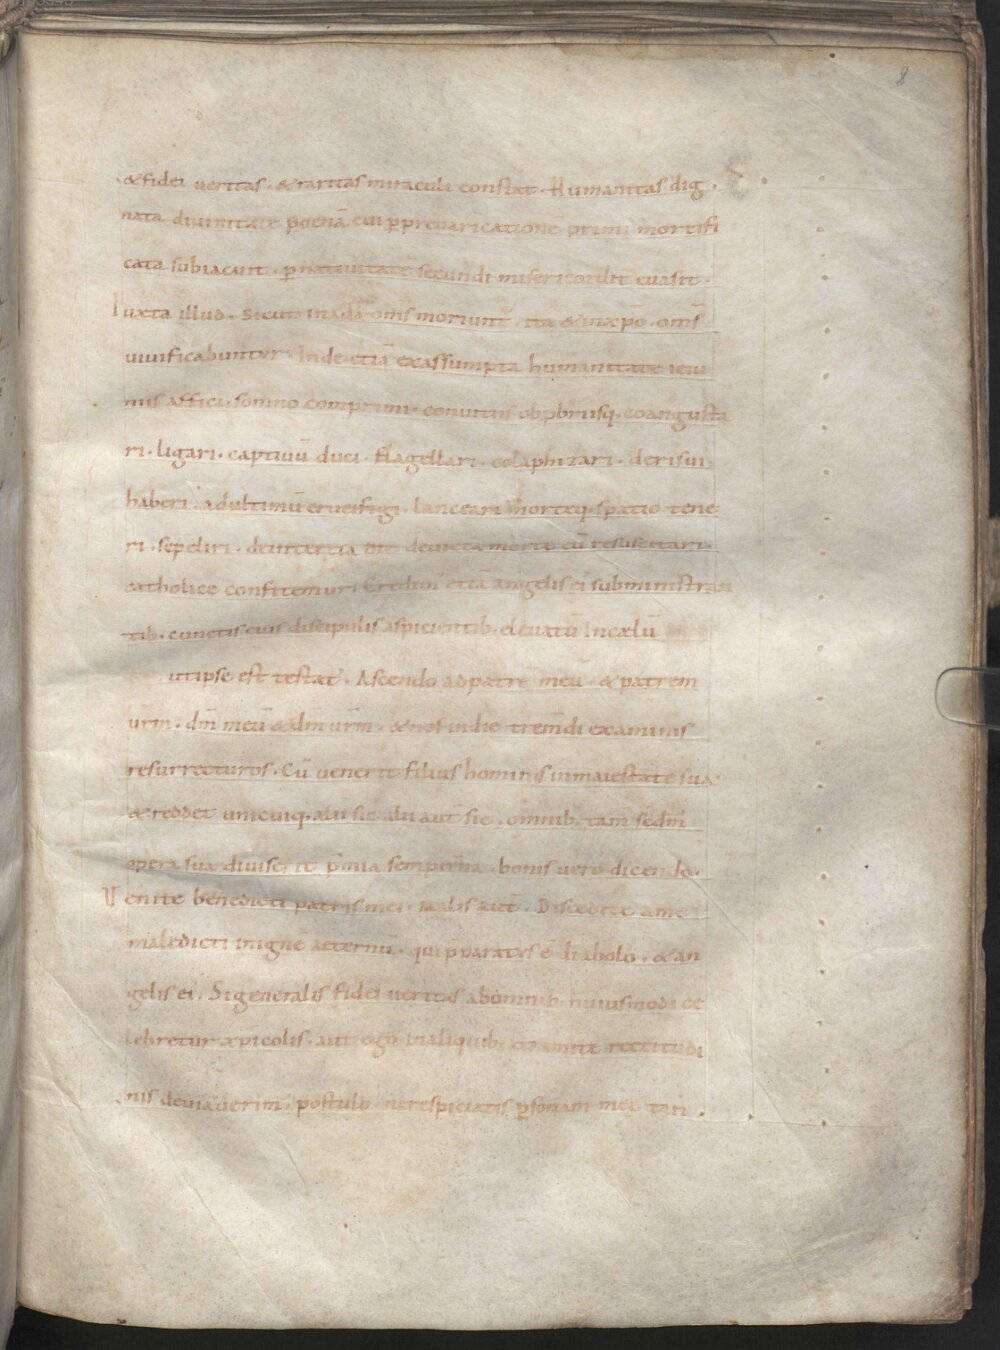 8
& fidei veritas · & raritas miraculi constat · Humanitas dig
nata divinitate poenā cui ꝑ prevaricationē primi mortifi
cata subiacuit · ꝑ nativitatē secundi misericordit evasit ·
Iuxta illud · Sicut in adā om̄s moriunt̄ · ita & in xp̄o · om̄s
vivificabuntur · Inde etiā ex assumpta humanitate ieiu
niis affici · somno comprimi · convitiis obꝓbriisq · coangusta
ri · ligari · captivū duci · flagellari · colaphizari · derisui
haberi · ad ultimū crucifigi · lanceari mortisq · spatio tene
ri · sepeliri · tertia die devicta morte cū resuscitari ·
catholice confitemur · Credim̄ etiā angelis ei subministran
tib · cunctis eius discipulis aspicientib · elevatū in cælū
ut ipse est testat̄ · Ascendo ad patrē meū · & patrem
vr̄m · dm̄ meū & dm̄ vr̄m · & nos in die trem̄di examinis
resurrecturos · Cū venerit filius hominis in maiestate sua
& reddet unicuiq · alii sic alii aut̄ sic · omnib tam̄ scdm̄
opera sua p̄mia sempit̄na · bonis vero dicendo ·
Venite benedicti patris mei · malis aut̄ · Discedite a me
maledicti in ignē aeternū · qui p̄paratus ē diabolo · & an
gelis ei · Si generalis fidei veritas ab omnib huiusmodi ce
lebretur xp̄icolis · aut ego in aliquib tramite rectitudi
nis deviaverim · postulo ne respiciatis ꝑsonam mei tari